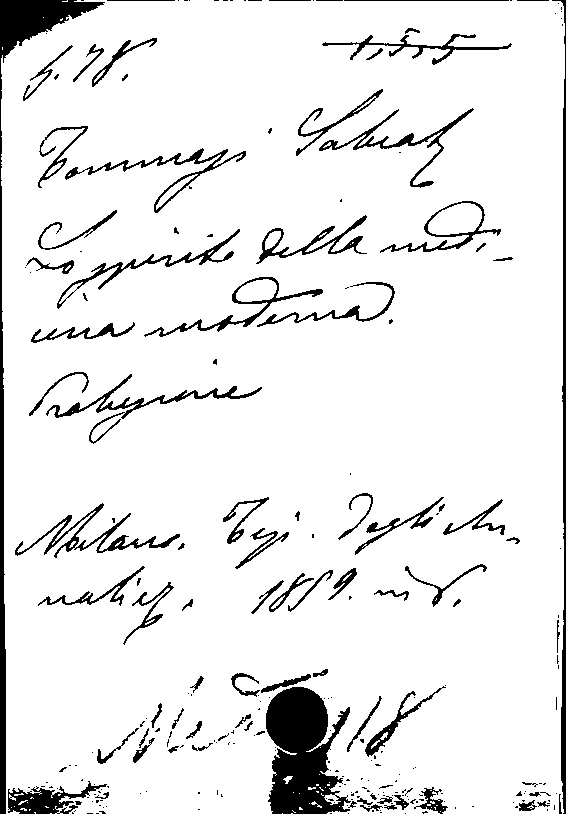 h. 78. 1,5,5
Tommasi Salvat
Lo spirito della medi-
cina moderna.
Prolusione
Milano. Tipi. degli An-
nali 1859. in 8.
Med 118